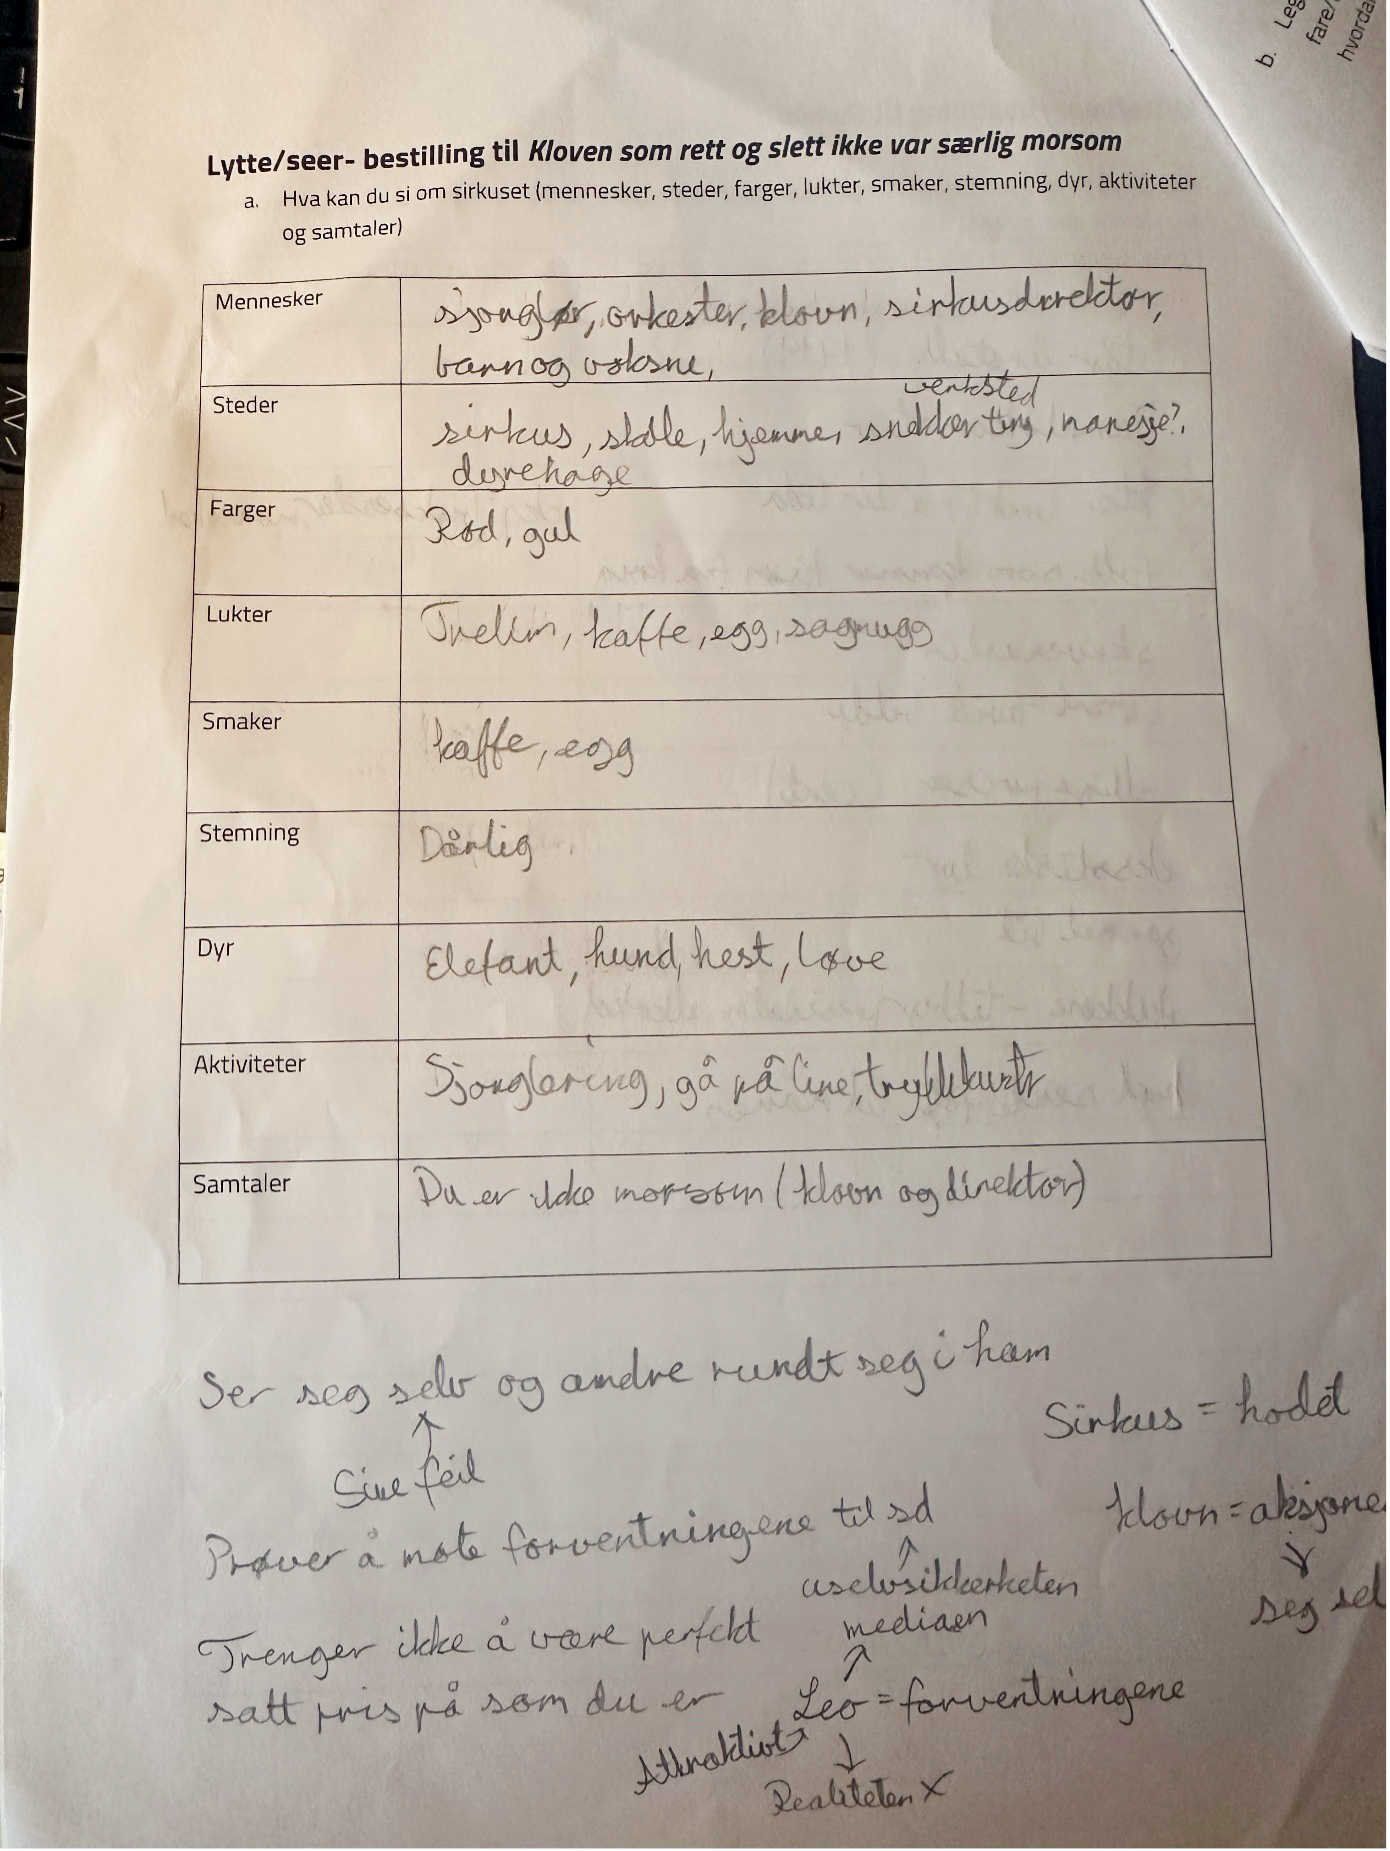 b. Leg
fare/
hvorda
Lytte/seer- bestilling til Kloven som rett og slett ikke var særlig morsom
a. Hva kan du si om sirkuset (mennesker, steder, farger, lukter, smaker, stemning, dyr, aktiviteter
og samtaler)
Mennesker
sjonglør, orkester, klovn, sirkusdirektør,
barn og voksne,
Steder
verksted
sirkus, stalle, hjemme, snekker ting, manesje?,
dyrehage
Farger
Rød, gul
Lukter
kaffe, egg, sagmugg
Smaker
kaffe, egg
Stemning
Dårlig
Dyr
Elefant, hund, hest, løve
Aktiviteter
Sjonglering, gå på line, tryllekunst
Samtaler
Du er ikke morsom (klovn og direktør)
Ser seg selv og andre rundt seg i ham
↑
Sine feil
Sirkus = hodet
Prøver å møte forventningene til sd
klovn = aksjone
↑
↓
uselvsikkerheten
seg sel
Trenger ikke å være perfekt
mediaen
↑
satt pris på som du er
Leo = forventningene
Attraktivt ↗
↓
Realiteten X